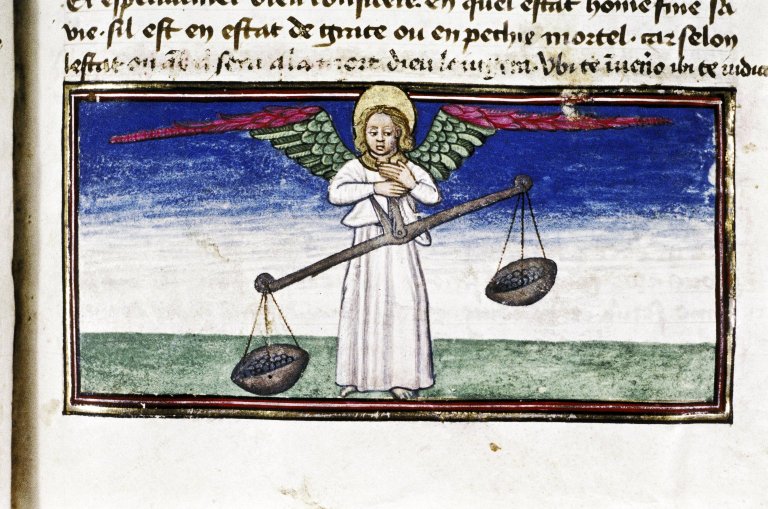 Et especiaument doit considerer en quel estat home fine sa
vie. sil est en estat de grace ou en pechie mortel. car selon
lestat ou il sera a la mort dieu le iugera. Vbi te inueño ibi te iudica